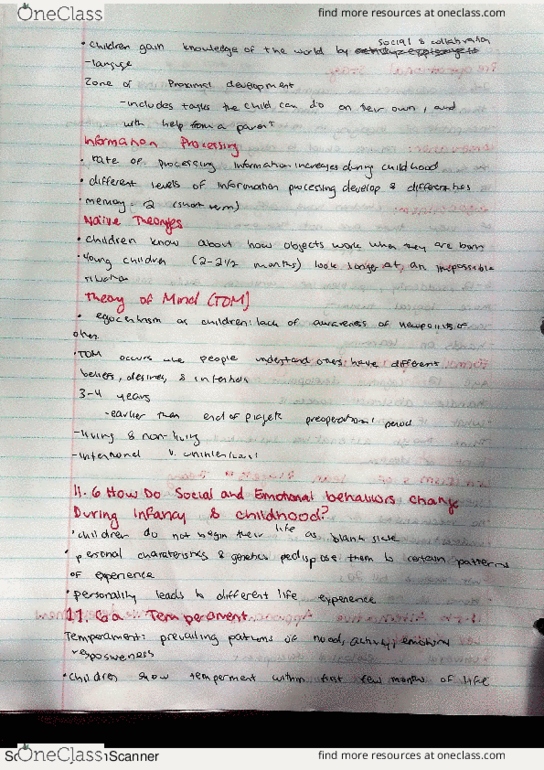 OneClass
find more resources at oneclass.com
social & collaboration
• children gain knowledge of the world by
-languge
Zone of Proximal development
-includes tasks the child can do on their own, and
with help from a parent
Information Processing
• rate of processing information increases during childhood
• different levels of information processing develop & differentiates
• memory - 2 (short term)
Naive Theories
• children know about how objects work when they are born
• Young children (2-2 1/2 months) look longer at an impossible
situation
Theory of Mind (TOM)
• egocentrism as children: lack of awareness of viewpoints of
other
• TOM occurs people understand others have different
beliefs, desires, & intentions
3-4 years
-earlier than end of piagets preoperational period
-living & non-living
-intentional v. unintentional
11.6 How Do Social and Emotional behaviors change
During infancy & childhood?
• children do not begin their life as blank slate
• personal charateristics & genetics predispose them to certain patterns
of experience
• personality leads to different life experience
11.6a Temperament
Temperament: prevailing patterns of mood, activity, emotional
resposiveness
• children show temperment within first few months of life
OneClass
Scanner
find more resources at oneclass.com